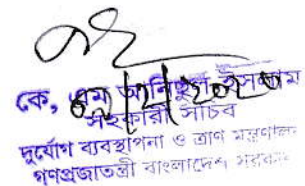 কে, এম, আনিছুল ইসলাম
সহকারী সচিব
দুর্যোগ ব্যবস্থাপনা ও ত্রাণ মন্ত্রণালয়
গণপ্রজাতন্ত্রী বাংলাদেশ সরকার